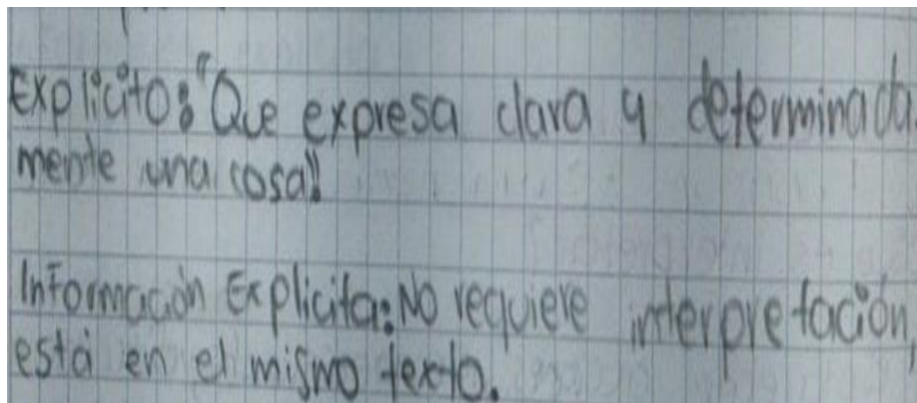 Explicito: "Que expresa clara y determinada
mente una cosa"
Información Explicita: No requiere interpretación,
está en el mismo texto.